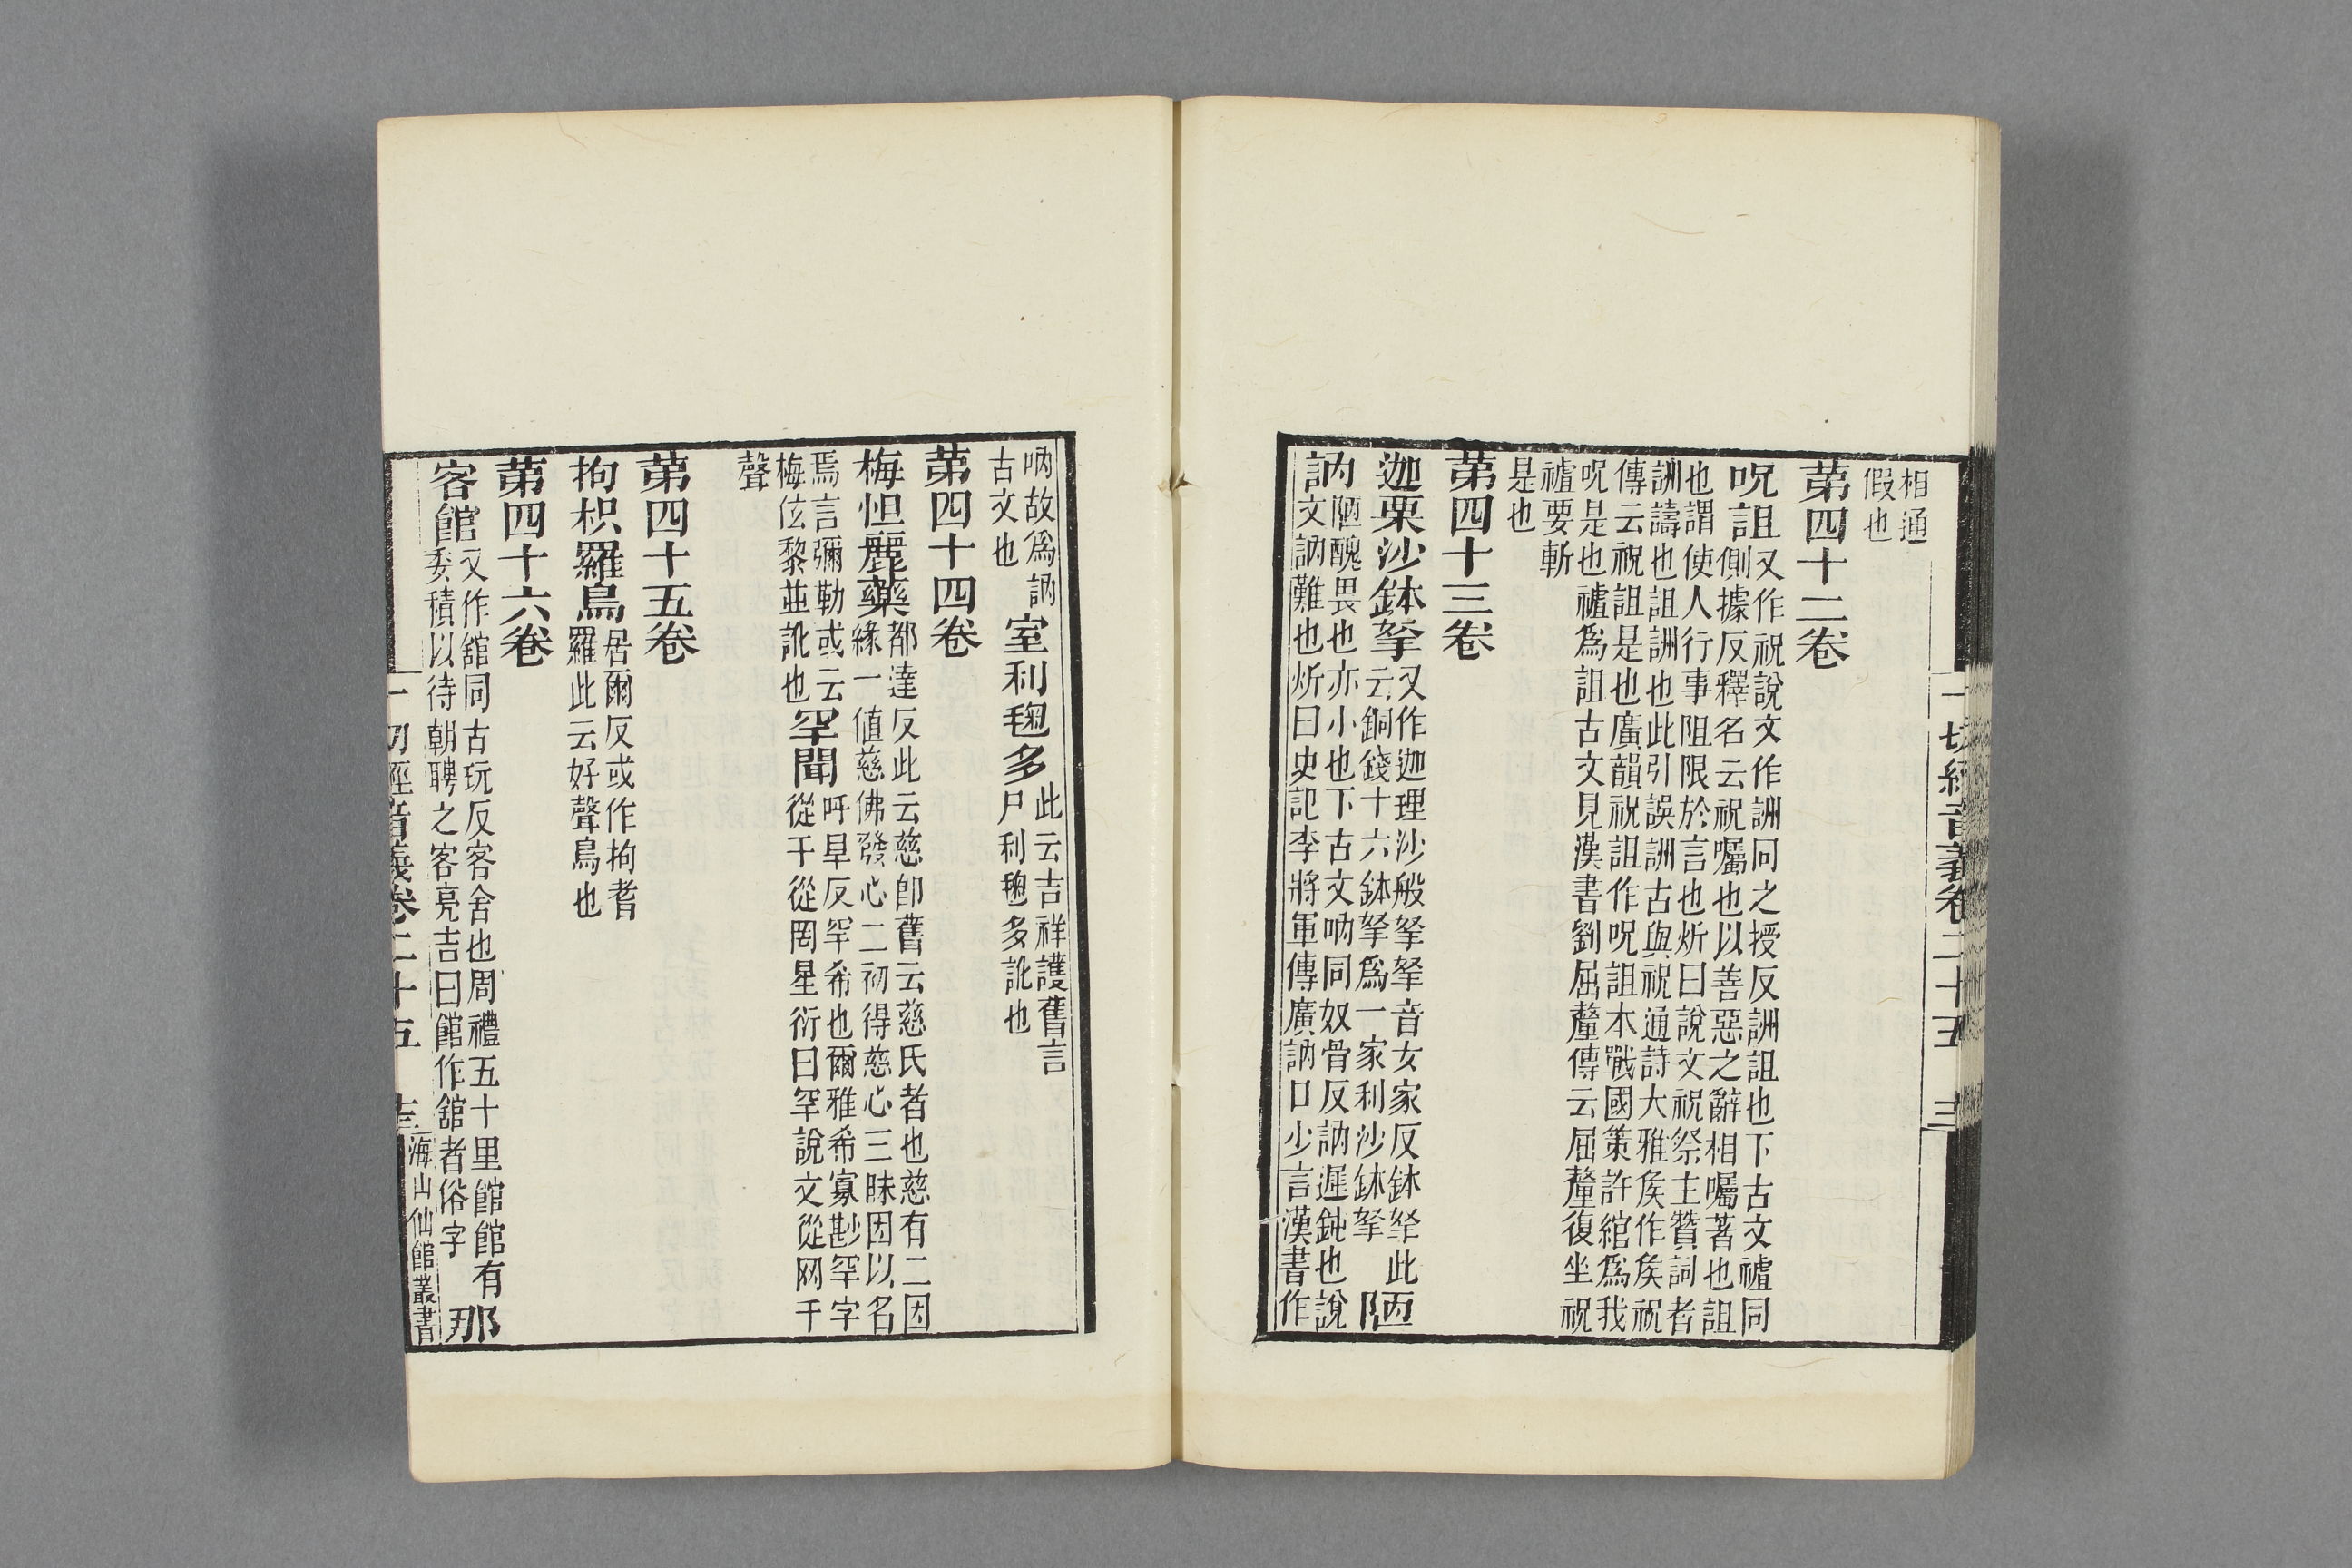 一切經音義卷二十五
相通
假也
第四十二卷
呪詛
又作祝說文作詶同之授反詶詛也下古文䄐同
側據反釋名云祝囑也以善惡之辭相囑著也詛
也謂使人行事阻限於言也炘曰說文祝祭主贊詞者
詶譸也詛詶也此引誤詶古與祝通詩大雅矦作矦祝
傳云祝詛是也廣韻祝詛作呪詛本戰國策許綰爲我
呪是也䄐爲詛古文見漢書劉屈氂傳云屈氂復坐祝
䄐要斬
是也
第四十三卷
迦栗沙鉢拏
又作迦理沙般拏拏音女家反鉢拏此
云銅錢十六鉢拏爲一家利沙鉢拏
陋
訥
陋醜畏也亦小也下古文吶同奴骨反訥遲鈍也說
文訥難也炘曰史記李將軍傳廣訥口少言漢書作
吶故爲訥
古文也
室利毱多
此云吉祥護舊言
尸利毱多訛也
第四十四卷
梅怛麗藥
都達反此云慈卽舊云慈氏者也慈有二因
緣一値慈佛發心二初得慈心三昧因以名
焉言彌勒或云
梅伭黎並訛也
罕聞
呼旱反罕希也爾雅希寡尠罕字
從干從罔星衍曰罕說文從网干
聲
第四十五卷
拘枳羅鳥
居爾反或作拘耆
羅此云好聲鳥也
第四十六卷
客館
又作舘同古玩反客舍也周禮五十里館館有
委積以待朝聘之客亮吉曰館作舘者俗字
那
一切經音義卷二十五
海山仙館叢書